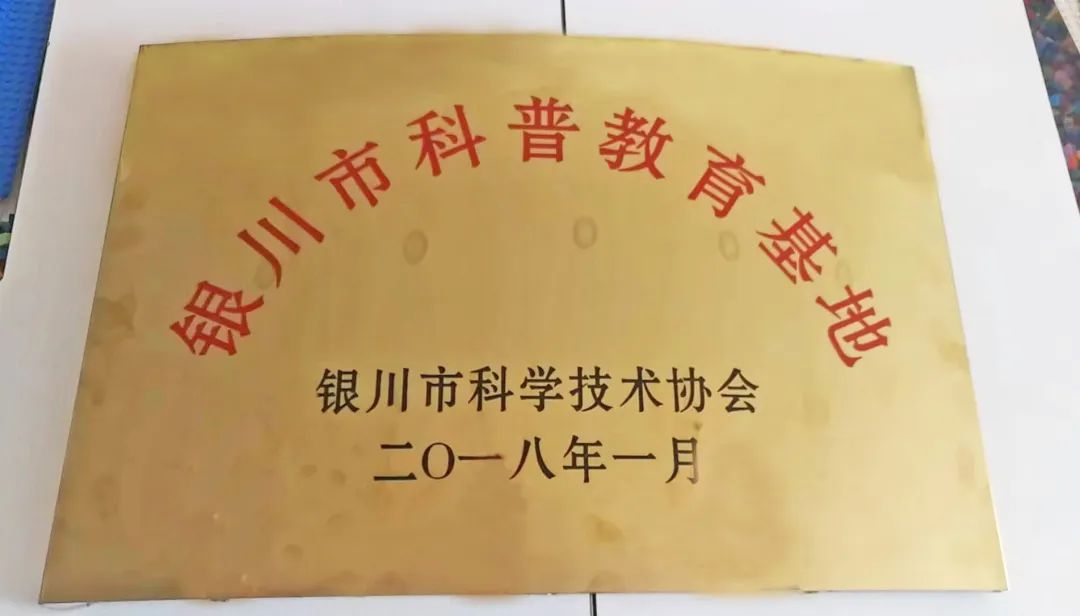 银川市科普教育基地
银川市科学技术协会
二〇一八年一月